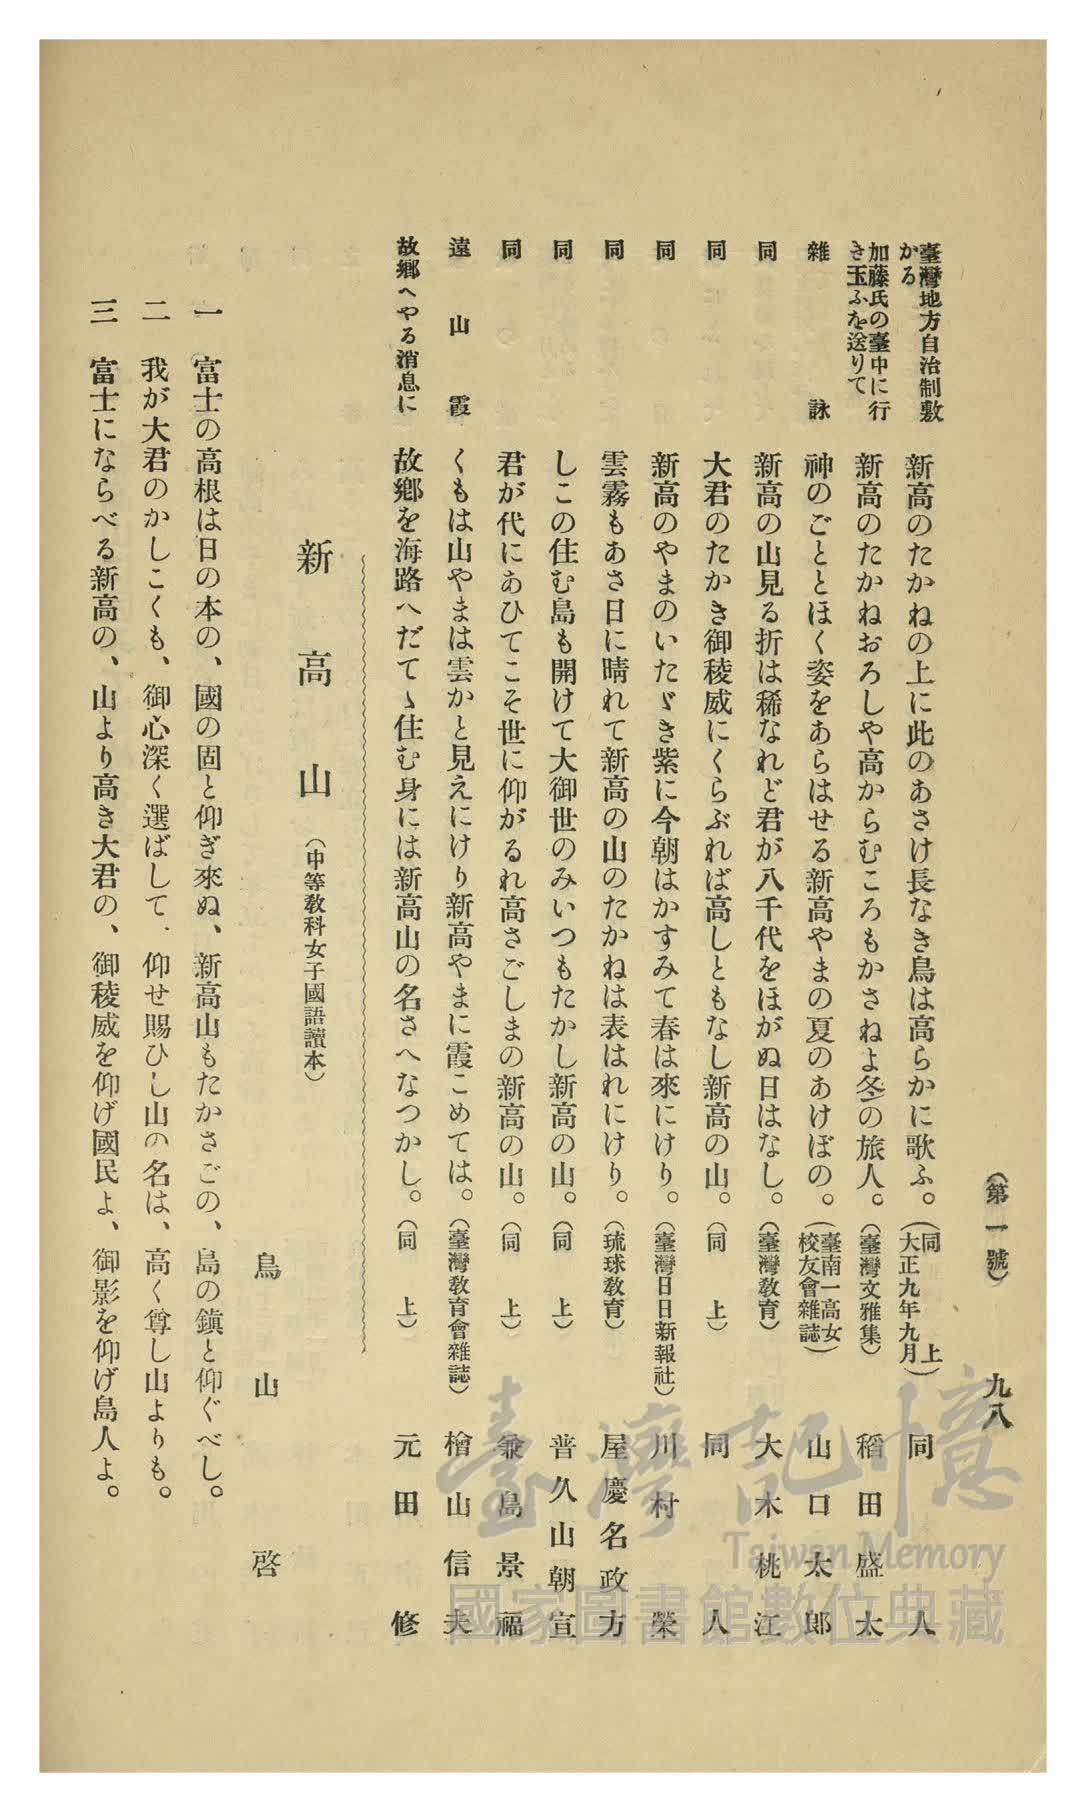 (第一號) 九八
臺灣地方自治制敷かる 新高のたかねの上に此のあさけ長なき鳥は高らかに歌ふ。(同上 大正九年九月) 同人
加藤氏の臺中に行き玉ふを送りて 新高のたかねおろしや高からむころもかさねよ冬の旅人。(臺灣文雅集) 稻田盛太
雜詠 神のごととほく姿をあらはせる新高やまの夏のあけぼの。(臺南一高女校友會雜誌) 山口太郎
同 新高の山見る折は稀なれど君が八千代をほがぬ日はなし。(臺灣教育) 大木桃江
同 大君のたかき御稜威にくらぶれば高しともなし新高の山。(同上) 同人
同 新高のやまのいたゞき紫に今朝はかすみて春は來にけり。(臺灣日日新報社) 川村榮
同 雲霧もあさ日に晴れて新高の山のたかねは表はれにけり。(琉球教育) 屋慶名政方
同 しこの住む島も開けて大御世のみいつもたかし新高の山。(同上) 普久山朝宣
同 君が代にあひてこそ世に仰がるれ高さごしまの新高の山。(同上) 兼島景福
遠山霞 くもは山やまは雲かと見えにけり新高やまに霞こめては。(臺灣教育會雜誌) 檜山信夫
故鄉へやる消息に 故鄉を海路へだてゝ住む身には新高山の名さへなつかし。(同上) 元田修
新高山 (中等教科女子國語讀本)
鳥山啓
一 富士の高根は日の本の、國の固と仰ぎ來ぬ、新高山もたかさごの、島の鎭と仰ぐべし。
二 我が大君のかしこくも、御心深く選ばして、仰せ賜ひし山の名は、高く尊し山よりも。
三 富士にならべる新高の、山より高き大君の、御稜威を仰げ國民よ、御影を仰げ島人よ。
臺灣記憶
Taiwan Memory
國家圖書館數位典藏